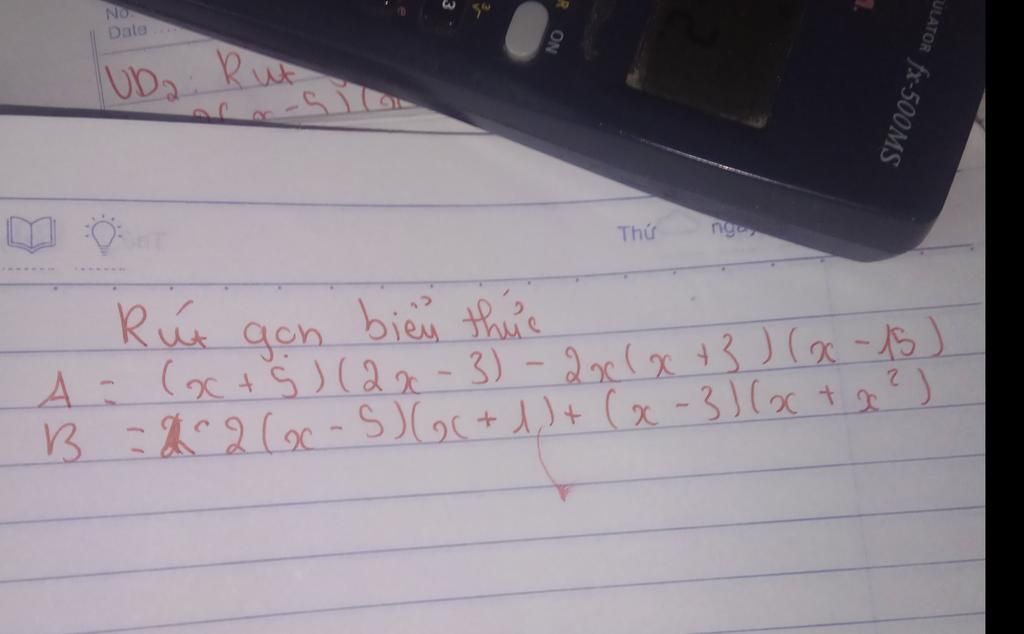 No.
Date
UD2: Rút
2(x-5)(x
ON
ULATOR fx-500MS
Thứ ngày
Rút gọn biểu thức
A = (x + 5)(2x - 3) - 2x(x + 3)(x - 15)
B = 2(x - 5)(x + 1) + (x - 3)(x + x²)